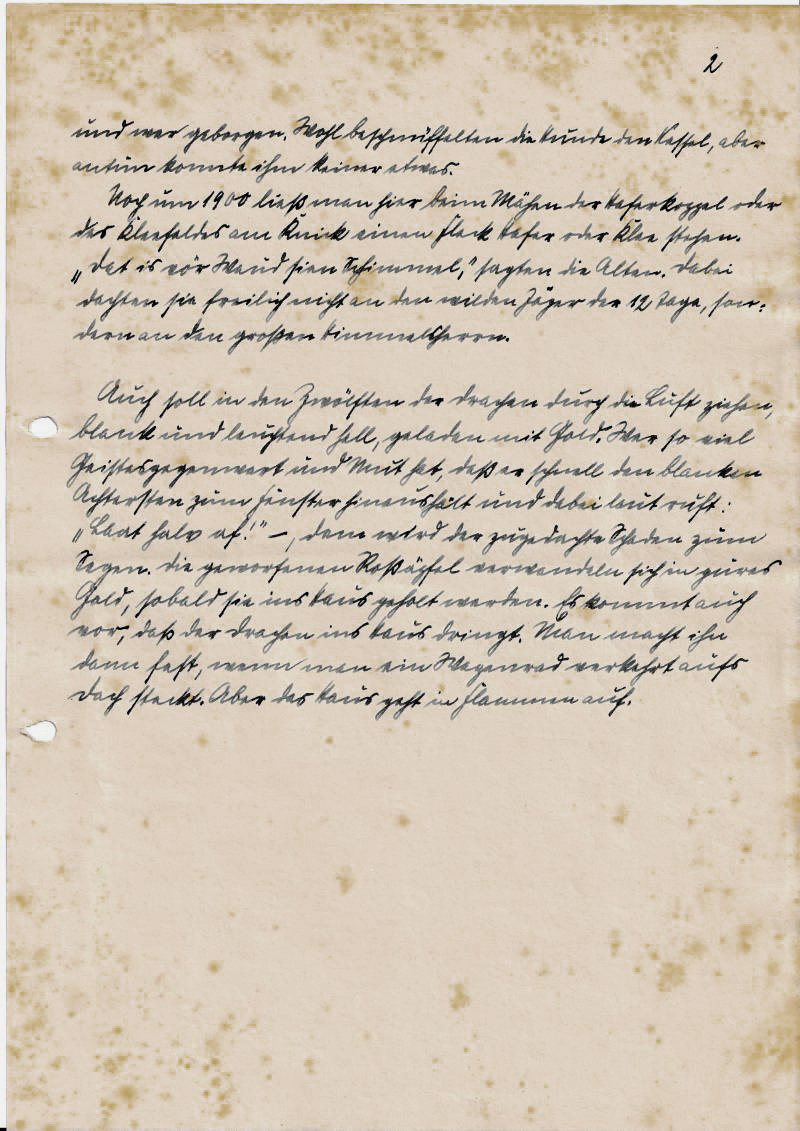 2
und war geborgen. Wohl beschnüffelten die Hunde den Kessel, aber
antun konnte ihm keiner etwas.
Noch um 1900 ließ man hier beim Mähen der Haferkoppel oder
des Kleefeldes am Knick einen Fleck Hafer oder Klee stehen.
„Dat is vör Waud sien Schimmel,“ sagten die Alten. Dabei
dachten sie freilich nicht an den wilden Jäger der 12 Tage, son-
dern an den großen Himmelsherrn.
Auch soll in den Zwölften der Drachen durch die Luft ziehen,
blank und leuchtend hell, geladen mit Gold. Wer so viel
Geistesgegenwart und Mut hat, daß er schnell den blanken
Achtersten zum Fenster hinaushält und dabei laut ruft:
„Laat halv af!“ –, dann wird der zugedachte Schaden zum
Segen. Die geworfenen Roßäpfel verwandeln sich in pures
Gold, sobald sie ins Haus geholt werden. Es kommt auch
vor, daß der Drachen ins Haus dringt. Man macht ihn
dann fest, wenn man ein Wagenrad verkehrt aufs
Dach steckt. Aber das Haus geht in Flammen auf.